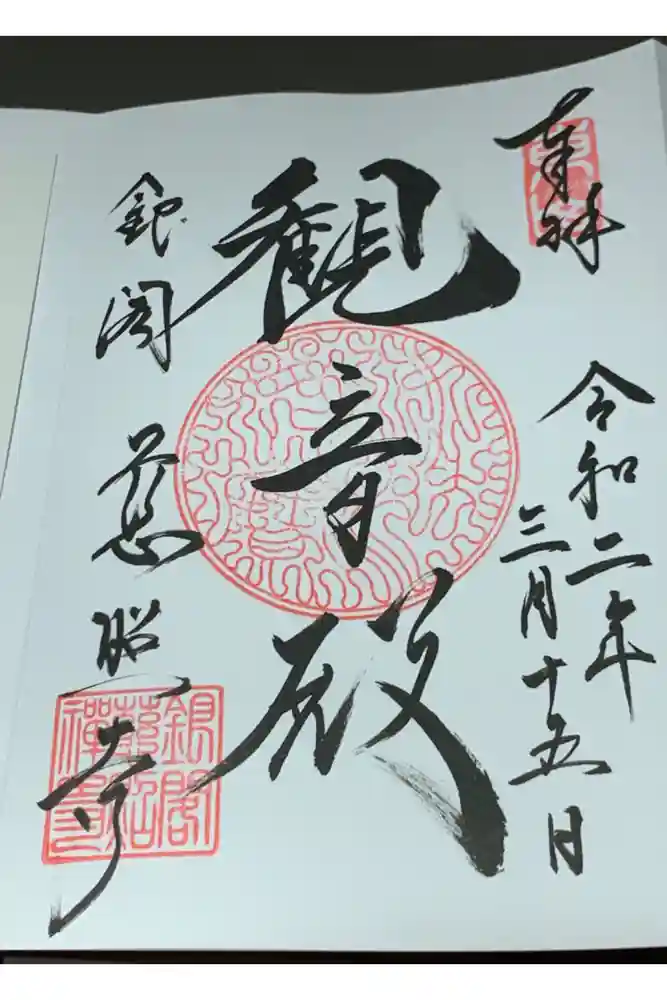 奉拝
令和二年
三月十五日
観音殿
銀閣 慈照寺
銀閣
慈照
禅寺